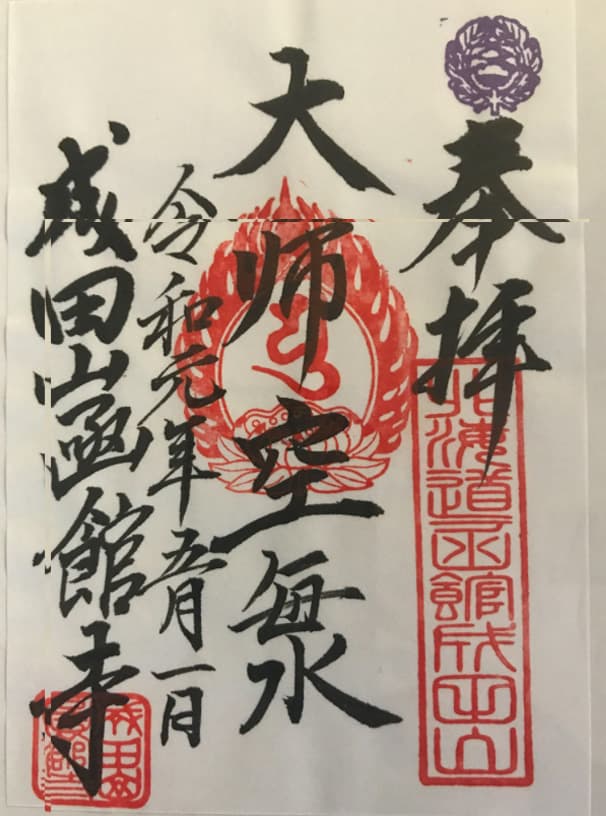 奉拝
北海道函館成田山
大師空海
令和元年五月一日
成田山函館寺